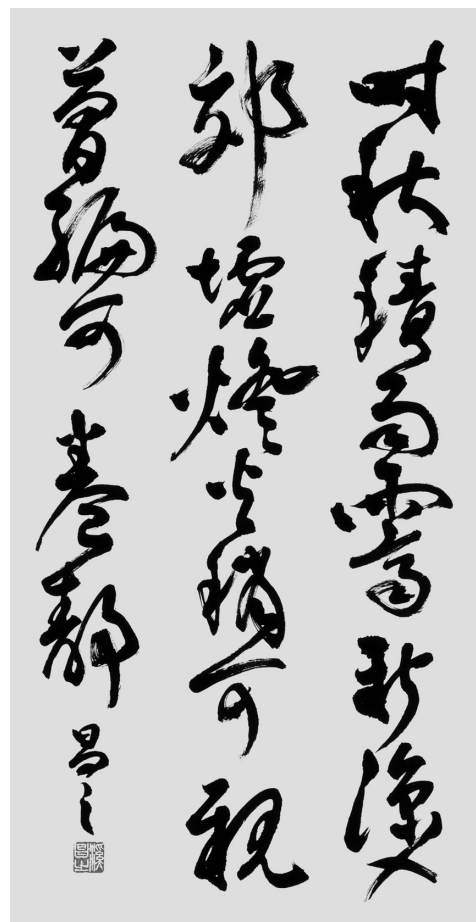 時秋積雨霽新涼入
郊墟燈火稍可親
簡編可卷舒
昌之